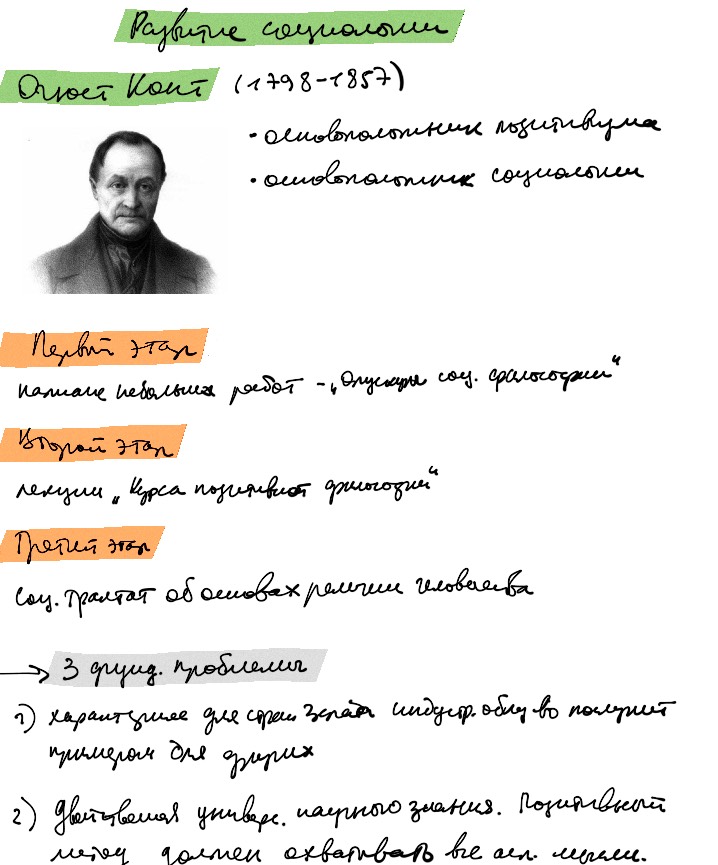 Развитие социологии
Огюст Конт (1798-1857)
• основоположник позитивизма
• основоположник социологии
Первый этап
написание небольших работ - „Опускулы соц. философии"
Второй этап
лекции „Курса позитивной философии"
Третий этап
соц. трактат об основах религии человечества
→ 3 фунд. проблемы
1) характерное для стран Запада индустр. общ-во послужит
примером для других
2) двойственная универс. научного знания. Позитивный
метод должен охватывать все асп. мысли.